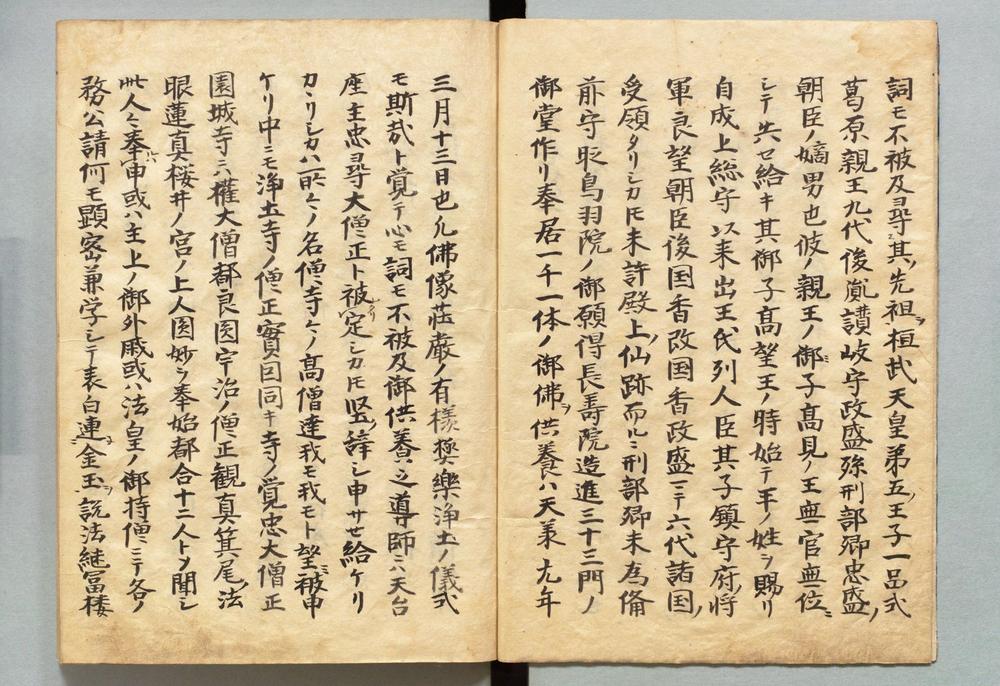 詞モ不被及尋其先祖ヲ桓武天皇第五ノ王子一品式
葛原親王九代後胤讃岐守政盛孫刑部卿忠盛ノ
朝臣ノ嫡男也彼ノ親王ノ御子高見ノ王無官無位ニ
シテ失セ給キ其御子高望王ノ時始テ平ノ姓ヲ賜リ
自成上総守以来出王氏列人臣其子鎮守府ノ将
軍良望朝臣後国香改国香政盛ニテ六代諸国ノ
受領タリシカトモ未許殿上ノ仙跡而ルニ刑部卿未為備
前守時鳥羽院ノ御願得長寿院造進三十三間ノ
御堂作リ奉居一千一体ノ御佛ヲ供養ハ天承元年
三月十三日也凡佛像荘厳ノ有様極楽浄土ノ儀式
モ斯哉ト覚テ心モ詞モ不被及御供養之導師ニハ天台
座主忠尋大僧正ト被定シカトモ堅ク辞シ申サセ給ケリ
カヽリシカハ所々ノ名僧寺々ノ高僧達我モ我モト望被申
ケリ中ニモ浄土寺ノ僧正實因同キ寺ノ覚忠大僧正
園城寺ニハ權大僧都良圓宇治ノ僧正観真箕尾ノ法
眼蓮真桜井ノ宮ノ上人圓妙ヲ奉始都合十二人トソ聞シ
此人々奉申或ハ主上ノ御外戚或ハ法皇ノ御持僧ニテ各ノ
務公請何モ顕密兼学シテ表白連金玉ヲ説法継冨楼